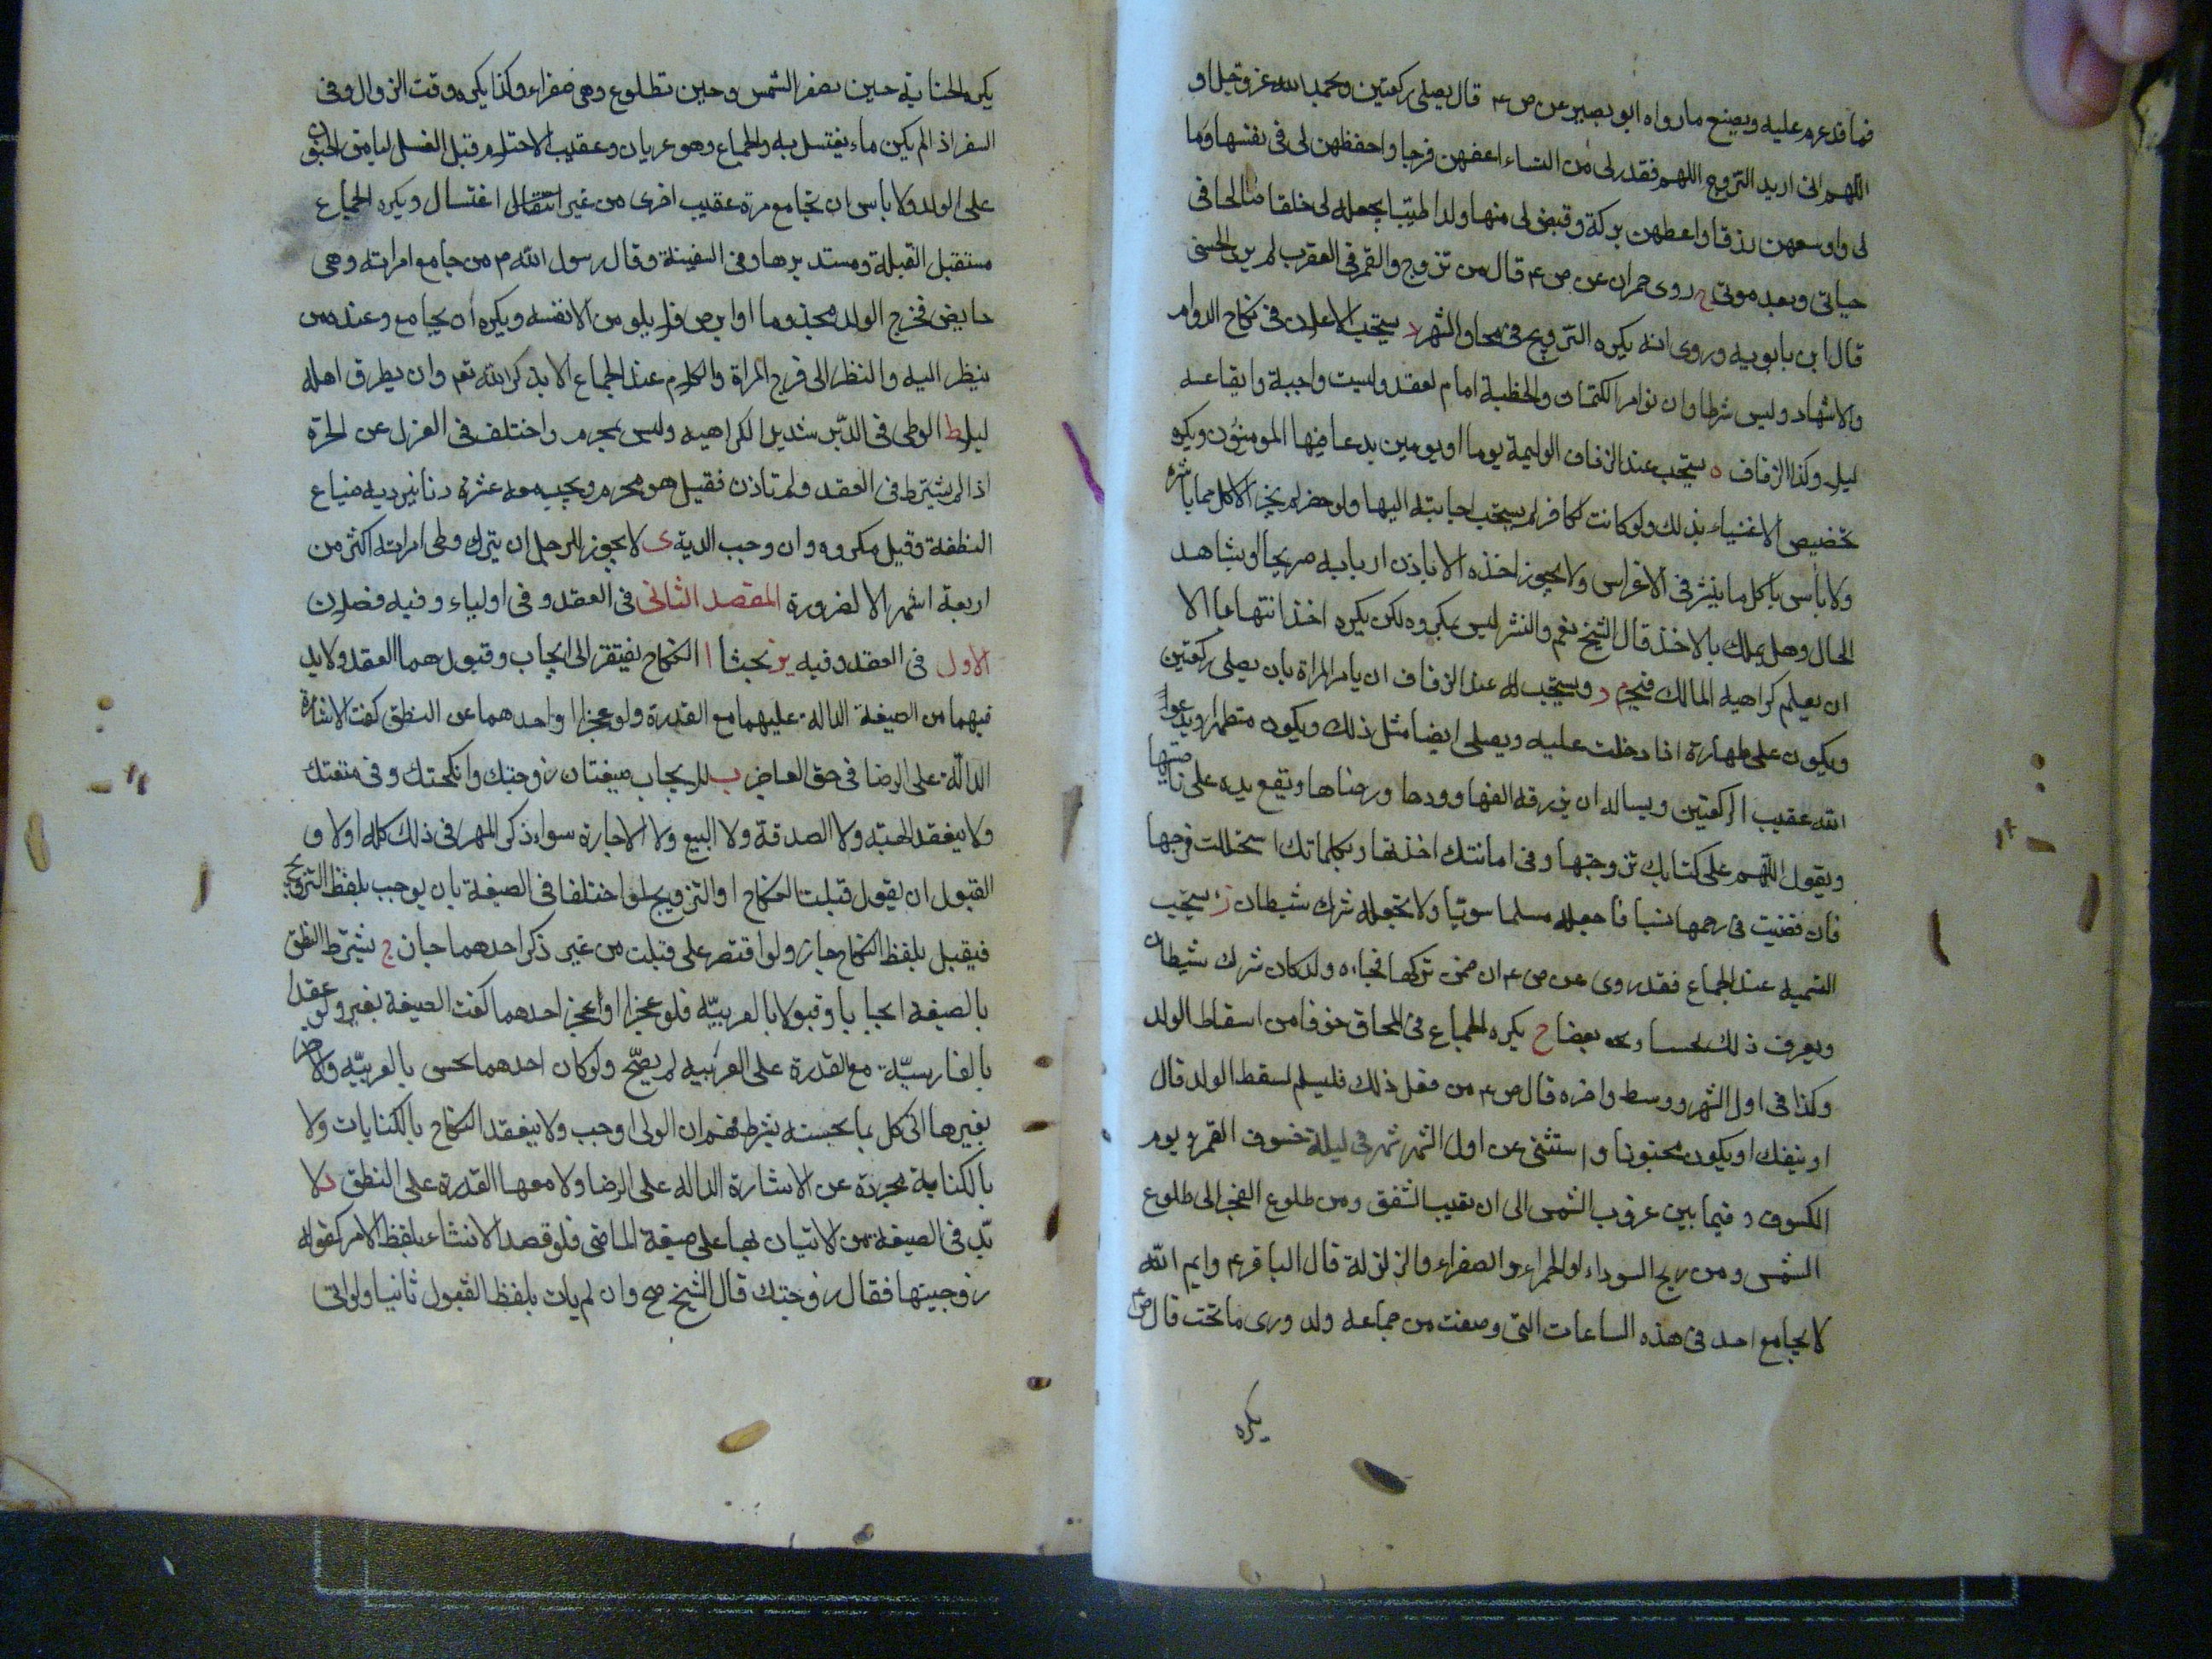 فما قد عزم عليه ويصنع ما رواه ابو بصير عن ص ع قال يصلى ركعتين ويحمد الله عز وجل و
اللهم انى اريد التزوج اللهم فقدر لى من النساء اعفهن فرجا واحفظهن لى فى نفسها وما
لى واوسعهن رزقا واعطهن بركة وقيض لى منها ولدا طيبا يجعله لى خلقا صالحا فى
حياتى وبعد موتى ج روى حمران عن ص ع قال من تزوج والقمر فى العقرب لم ير الحسنى
قال ابن بابويه وروى انه يكره التزويج فى محاق الشهر د يستحب الاعلان فى نكاح الدوام
والاشهاد وليس شرطا وان توامر الكتمان والخطبة امام العقد وليست واجبة وايقاعه
ليلا وكذا الزفاف ه يستحب عند الزفاف الوليمة يوما او يومين يدعا فيها المومنون ويكره
تخصيص الاغنياء بذلك ولو كانت لكافر لم يستحب اجابته اليها ولو حضر لم يجز الاكل مما باشره
ولا بأس باكل ما ينثر فى الاعراس ولا يجوز اخذه الا باذن اربابه صريحا او بشاهد
الحال وهل يملك بالاخذ قال الشيخ نعم والنثر ليس بمكروه لكن يكره اخذ انتهابا الا
ان يعلم كراهيه المالك فيحرم و ويستحب له عند الزفاف ان يامر المراة بان يصلى ركعتين
ويكون على طهارة اذا دخلت عليه ويصلى ايضا مثل ذلك ويكون متطهرا ويدعوا
الله عقيب الركعتين ويساله ان يرزقه الفها وودها ورضاها ويقع يده على ناصيتها
ويقول اللهم على كتابك تزوجتها وفى امانتك اخذتها وبكلماتك استحللت فرجها
فان قضيت فى رحمها شيا فاجعله مسلما سويا ولا تجعله شرك شيطان ز يستحب
التسميه عند الجماع فقد روى عن ص ع ان متى تركها فجاءه ولد كان شرك شيطان
ويعرف ذلك بحبنا وبغضنا ح يكره الجماع فى المحاق خوفا من اسقاط الولد
وكذا فى اول الشهر ووسط واخره قال ص ع من فعل ذلك فليسلم لسقط الولد قال
او ينفك او يكون مجنونا واستثنى عن اول الشهر شهر فى ليلة خسوف القمر ويوم
الكسوف و فيما بين غروب الشمس الى ان تغيب الشفق ومن طلوع الفجر الى طلوع
الشمس ومن ريح السوداء او الحمراء والصفراء والزلزلة قال الباقر ع وايم الله
لا يجامع احد فى هذه الساعات التى وصفت من جماعه ولد ورى ما تحت قال ص ع
يكره
يكره الجنابة حين تصفر الشمس وحين تطلوع وهى صفراء وكذا يكره وقت الزوال وفى
السفر اذا لم يكن ماء يغتسل به والجماع وهو عريان وعقيب الاحتلام قبل الغسل ليامن الجنون
على الولد ولا باس ان يجامع مرة عقيب اخرى من غير انتقال اغتسال ويكره الجماع
مستقبل القبلة ومستدبرها وفى السفينة وقال رسول الله م من جامع امراته وهى
حايض فخرج الولد مجذوما او ابرص فلا يلومن الا نفسه ويكره ان يجامع وعنده من
ينظر اليه والنظر الى فرج المراة والكلام عند الجماع الا بذكر الله تعم وان يطرق اهله
ليلا ط الوطى فى الدبر شديد الكراهيه وليس بمحرم واختلف فى العزل عن الحرة
اذا لم يشترط فى العقد ولم تاذن فقيل هو محرم ويجب معه عشرة دنانير ديه ضياع
النطفة وقيل مكروه وان وجب الدية ى لا يجوز للرجل ان يترك وطى امراته اكثر من
اربعة اشهر الا لضرورة المقصد الثانى فى العقد و فى اولياء وفيه فصلان
الاول فى العقد وفيه يز بحثا ا النكاح يفتقر الى ايجاب وقبول هما العقد ولابد
فيهما من الصيغة الداله عليهما مع القدرة ولو عجزا او احدهما عن النطق كفت الاشارة
الدالة على الرضا فى حق العاجز ب للايجاب صيغتان زوجتك وانكحتك وفى متعتك
ولا ينعقد الهبة ولا الصدقة ولا البيع ولا الاجارة سواء ذكر المهر فى ذلك كله اولا و
القبول ان يقول قبلت النكاح او التزويج ولو اختلفا فى الصيغة بان يوجب بلفظ التزويج
فيقبل بلفظ النكاح جاز ولو اقتصر على قبلت من غير ذكر احدهما جاز ج يشترط النطق
بالصيغه ايجابا وقبولا بالعربيه فلو عجزا او عجز احدهما كفت الصيغة بغير ولو عقدا
بالفارسية مع القدرة على العربيه لم يصح ولو كان احدهما يحسن بالعربيه والاخر
بغيرها اتى كل بما يحسنه بشرط فهم ان الولى اوجب ولا ينعقد النكاح بالكنايات ولا
بالكتابة مجردة عن الاشارة الداله على الرضا ولا معها القدرة على النطق د لا
بد فى الصيغة من الاتيان بها على صيغة الماضى فلو قصد الانشاء بلفظ الامر كقوله
زوجنيها فقال زوجتك قال الشيخ صح وان لم يات بلفظ القبول ثانيا ولو اتى